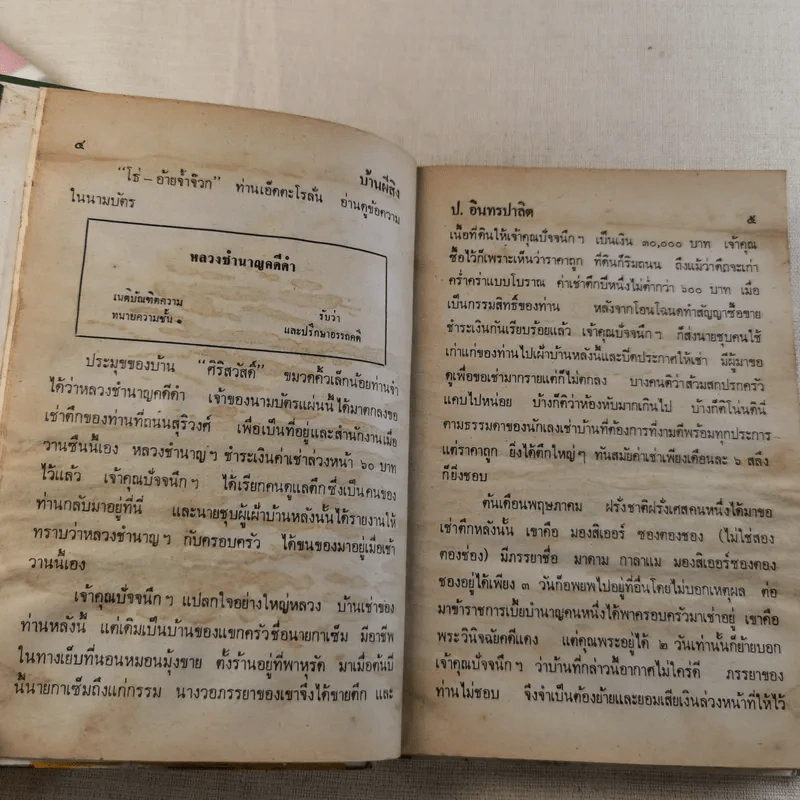 ๔
บ้านผีสิง
“โธ่ – อ้ายจ้ำจ๊วก” ท่านเอ็ดตะโรลั่น อ่านดูข้อความ
ในนามบัตร
หลวงชำนาญคดีดำ
เนติบัณฑิตความ
ทนายความชั้น ๑
รับว่า
และปรึกษาอรรถคดี
ประมุขของบ้าน “ศิริสวัสดิ์” ขมวดคิ้วเล็กน้อยท่านจำ
ได้ว่าหลวงชำนาญคดีดำ เจ้าของนามบัตรแผ่นนี้ได้มาตกลงขอ
เช่าตึกของท่านที่ถนนสุริวงศ์ เพื่อเป็นที่อยู่และสำนักงานเมื่อ
วานซืนนี้เอง หลวงชำนาญฯ ชำระเงินค่าเช่าล่วงหน้า ๖๐ บาท
ไว้แล้ว เจ้าคุณปัจจนึกฯ ได้เรียกคนดูแลตึกซึ่งเป็นคนของ
ท่านกลับมาอยู่ที่นี่ และนายชุบผู้เฝ้าบ้านหลังนั้นได้รายงานให้
ทราบว่าหลวงชำนาญฯ กับครอบครัว ได้ขนของมาอยู่เมื่อเช้า
วานนี้เอง
เจ้าคุณปัจจนึกฯ แปลกใจอย่างใหญ่หลวง บ้านเช่าของ
ท่านหลังนี้ แต่เดิมเป็นบ้านของแขกครัวชื่อนายกาเซ็ม มีอาชีพ
ในทางเย็บที่นอนหมอนมุ้งขาย ตั้งร้านอยู่ที่พาหุรัด มาเมื่อต้นปี
นี้นายกาเซ็มถึงแก่กรรม นางวอภรรยาของเขาจึงได้ขายตึก และ
ป. อินทรปาลิต
๕
เนื้อที่ดินให้เจ้าคุณปัจจนึกฯ เป็นเงิน ๓๐,๐๐๐ บาท เจ้าคุณ
ซื้อไว้ก็เพราะเห็นว่าราคาถูก ที่ดินก็ริมถนน ถึงแม้ว่าตึกจะเก่า
คร่ำคร่าแบบโบราณ ค่าเช่าตึกปีหนึ่งไม่ต่ำกว่า ๖๐๐ บาท เมื่อ
เป็นกรรมสิทธิ์ของท่าน หลังจากโอนโฉนดทำสัญญาซื้อขาย
ชำระเงินกันเรียบร้อยแล้ว เจ้าคุณปัจจนึกฯ ก็ส่งนายชุบคนใช้
เก่าแก่ของท่านไปเฝ้าบ้านหลังนี้และปิดประกาศให้เช่า มีผู้มาขอ
ดูเพื่อขอเช่ามากรายแต่ก็ไม่ตกลง บางคนติว่าส้วมสกปรกครัว
แคบไปหน่อย บ้างก็ติว่าห้องทึบมากเกินไป บ้างก็ติโน่นตินี่
ตามธรรมดาของนักเลงเช่าบ้านที่ต้องการที่งามดีพร้อมทุกประการ
แต่ราคาถูก ยิ่งได้ตึกใหญ่ๆ ทันสมัยค่าเช่าเพียงเดือนละ ๖ สลึง
ก็ยิ่งชอบ
ต้นเดือนพฤษภาคม ฝรั่งชาติฝรั่งเศสคนหนึ่งได้มาขอ
เช่าตึกหลังนั้น เขาคือ มองสิเออร์ ซองตองซอง (ไม่ใช่สอง
ตองช่อง) มีภรรยาชื่อ มาดาม กาลาแม มองสิเออร์ซองตอง
ซองอยู่ได้เพียง ๓ วันก็อพยพไปอยู่ที่อื่นโดยไม่บอกเหตุผล ต่อ
มาข้าราชการเบี้ยบำนาญคนหนึ่งได้พาครอบครัวมาเช่าอยู่ เขาคือ
พระวินิจฉัยคดีแดง แต่คุณพระอยู่ได้ ๒ วันเท่านั้นก็ย้ายบอก
เจ้าคุณปัจจนึกฯ ว่าบ้านที่กล่าวนี้อากาศไม่ใคร่ดี ภรรยาของ
ท่านไม่ชอบ จึงจำเป็นต้องย้ายและยอมเสียเงินล่วงหน้าที่ให้ไว้